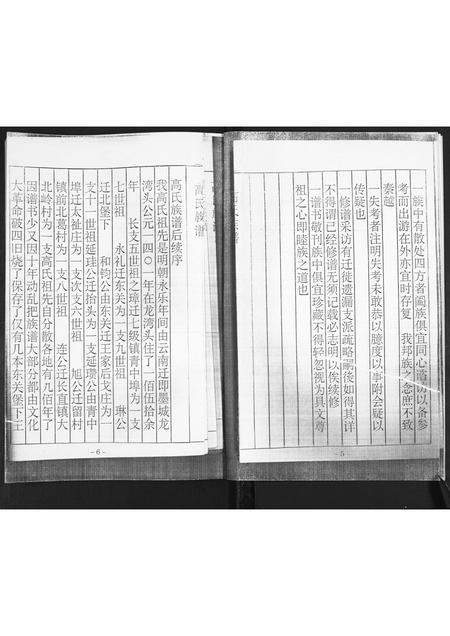 一族中有散处四方者阖族俱宜同心谘访以备参
考而出游在外亦宜时存复 我邦族之念庶不致
秦越
一失考者注明失考未敢恭以臆度以事附会疑以
传疑也
一修谱采访有迁徙遗漏支派疏略嗣后如得其详
不得谓已经修谱无须记载必志明以俟续修
一谱书敬刊族中俱宜珍藏不得轻忽视为具文尊
祖之心即睦族之道也
－5－
高氏族谱
高氏族谱后续序
我高氏祖先是明朝永乐年间由云南迁即墨城龙
湾头公元一四〇一年在龙湾头住了一佰伍拾余
年 长支五世祖之璋迁七级镇青中埠为一支
七世祖 永礼迁东关为一支九世祖 琳公
迁北堡下 和钧公由东关迁王家后戈庄为一
支十一世祖延珪公迁抬头为一支延瓒公由青中
埠迁太祉庄为一支次支六世祖 旭公迁留村
镇前北葛村为一支八世祖 连公迁长直镇大
北岭村为一支高氏祖先自分散各地有几佰年了
因谱书少又因十年动乱把族谱大部分都由文化
大革命破四旧烧了保存了仅有几本东关堡下王
－6－